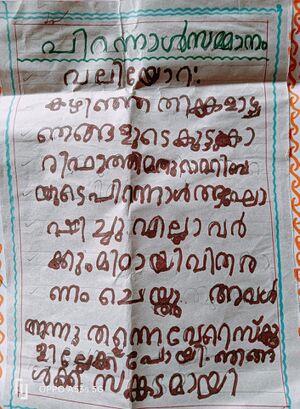 പിറന്നാൾ സമ്മാനം
വലിയോറ:
കഴിഞ്ഞ തിങ്കളാഴ്ച
ഞങ്ങളുടെ കൂട്ടുകാ
രി ഫാത്തിമത്തു
യുടെ പിറന്നാൾ ആഘോ
ഷിച്ചു. എല്ലാവർ
ക്കും മിഠായി വിതര
ണം ചെയ്തു. അവൾ
അന്നു തന്നെ വേറെ സ്കൂ
ളിലേക്ക് പോയി. ഞങ്ങ
ൾക്ക് സങ്കടമായി
OPPO A53s 5G